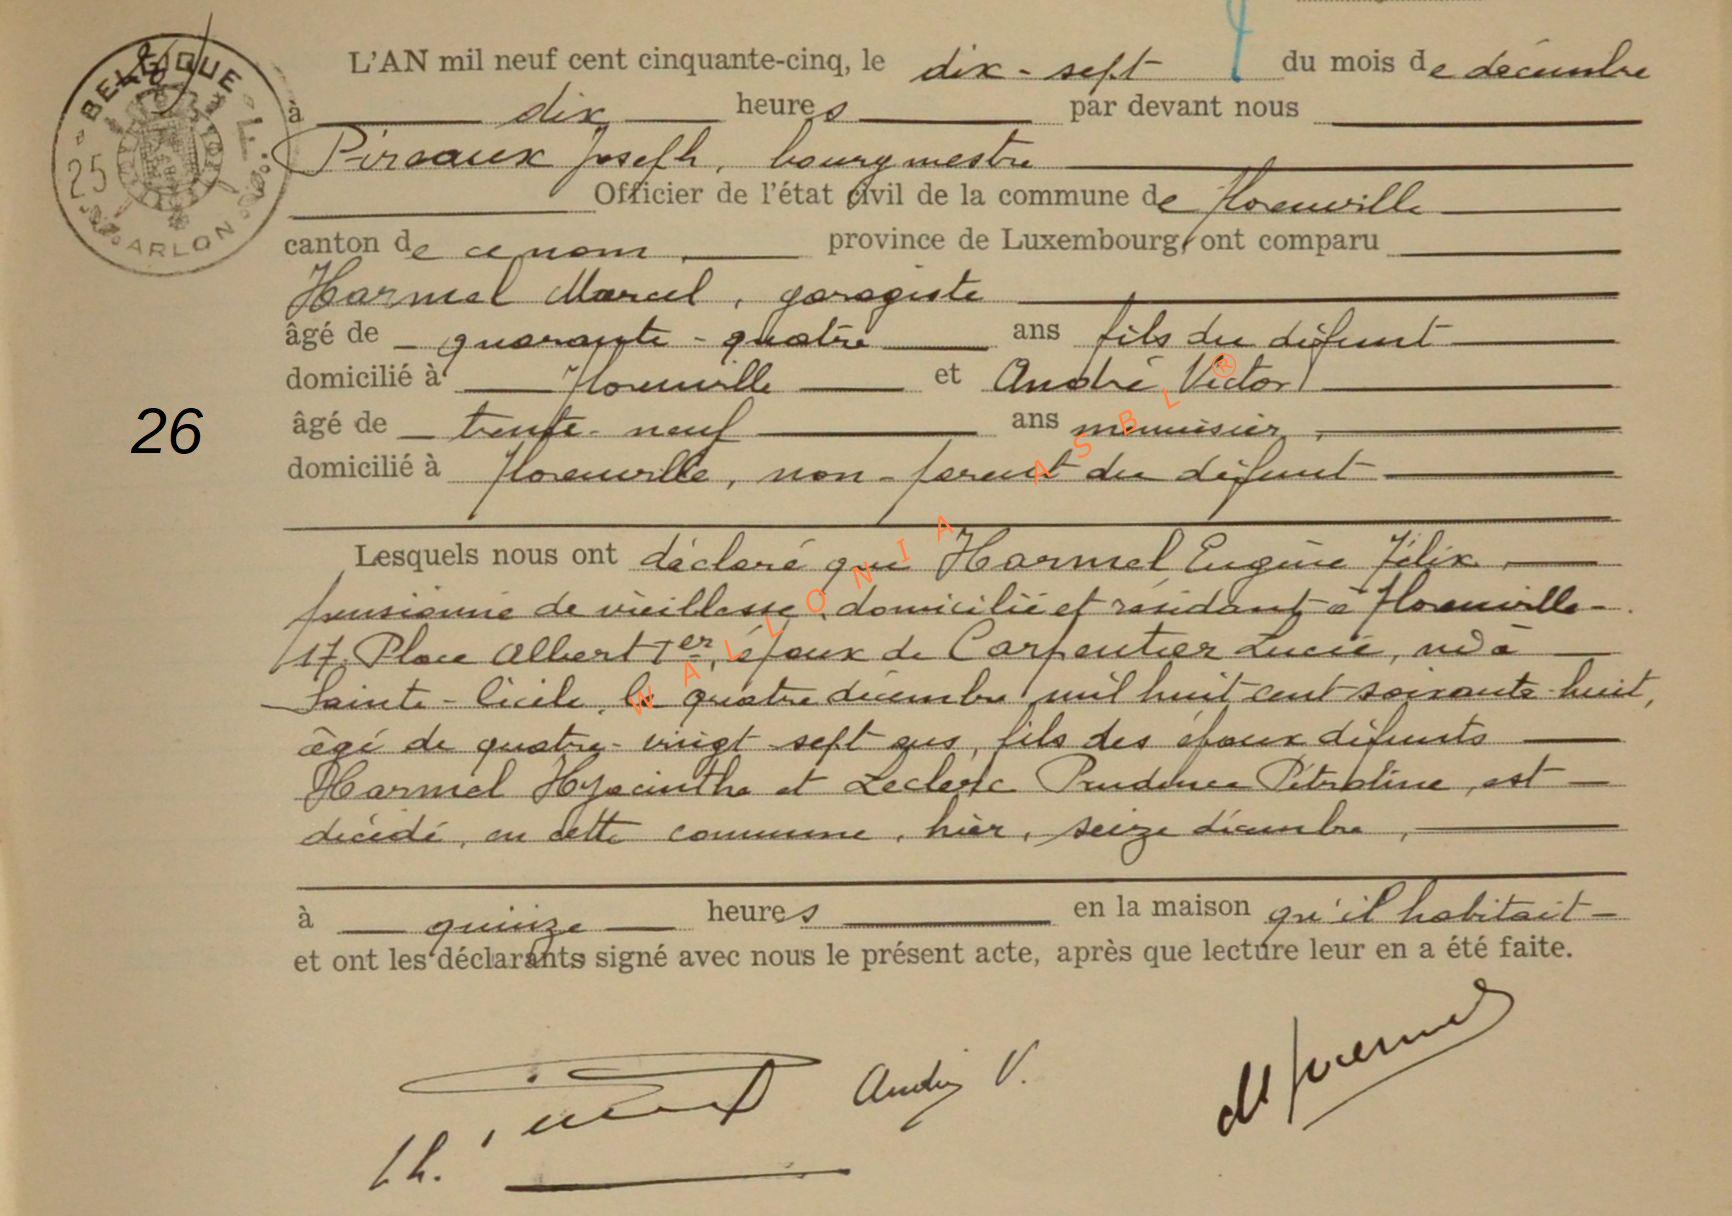 L'AN mil neuf cent cinquante-cinq, le dix-sept du mois de décembre
à dix heures par devant nous
Pireaux Joseph, bourgmestre
Officier de l'état civil de la commune de Florenville
canton de ce nom, province de Luxembourg, ont comparu
Harmel Marcel, garagiste
âgé de quarante-quatre ans fils du défunt
domicilié à Florenville et André Victor
26
âgé de trente-neuf ans menuisier,
domicilié à Florenville, non-parent du défunt
Lesquels nous ont déclaré que Harmel Eugène Félix,
pensionné de vieillesse, domicilié et résidant à Florenville-
17, Place Albert Ier, époux de Carpentier Lucie, né à
Sainte-Cécile, le quatre décembre mil huit cent soixante-huit,
âgé de quatre-vingt-sept ans, fils des époux défunts
Harmel Hyacinthe et Leclerc Prudence Pétroline, est
décédé, en cette commune, hier, seize décembre,
à quinze heures en la maison qu'il habitait
et ont les déclarants signé avec nous le présent acte, après que lecture leur en a été faite.
André V.
BELGIQUE
25
ARLON
WALLONIA ASBL®